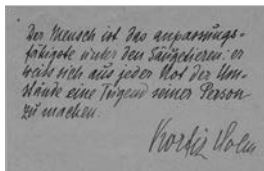 Der Mensch ist das anpassungs-
fähigste unter den Säugetieren: er
weiß sich aus jeder Not der Um-
stände eine Tugend seiner Person
zu machen.
Korfiz Holm